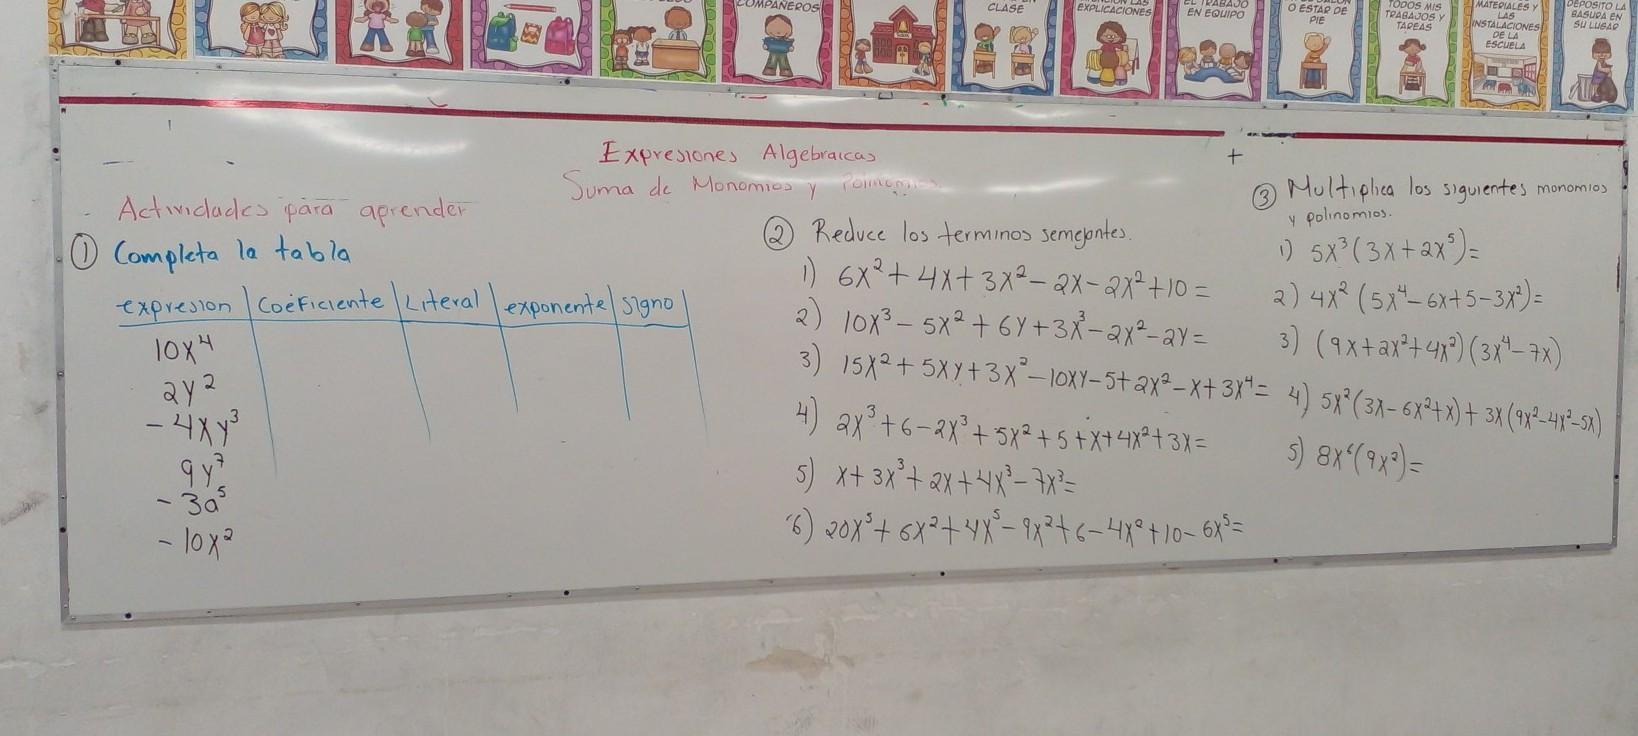 COMPAÑEROS
CLASE
EXPLICACIONES
EL TRABAJO
EN EQUIPO
O ESTAR DE
PIE
TODOS MIS
TRABAJOS Y
TAREAS
MATERIALES Y
LAS
INSTALACIONES
DE LA
ESCUELA
DEPOSITO LA
BASURA EN
SU LUGAR
Expresiones Algebraicas
Suma de Monomios y Polinomios
Actividades para aprender
① Completa la tabla
expresion | Coeficiente | Literal | exponente | signo
10x⁴
2y²
-4xy³
9y⁷
-3a⁵
-10x²
② Reduce los terminos semejantes.
1) 6x²+4x+3x²-2x-2x²+10=
2) 10x³-5x²+6y+3x³-2x²-2y=
3) 15x²+5xy+3x²-10xy-5+2x²-x+3x⁴=
4) 2x³+6-2x³+5x²+5+x+4x²+3x=
5) x+3x³+2x+4x³-7x³=
6) 20x⁵+6x²+4x⁵-9x²+6-4x²+10-6x⁵=
+
③ Multiplica los siguientes monomios
y polinomios.
1) 5x³(3x+2x⁵)=
2) 4x²(5x⁴-6x+5-3x²)=
3) (9x+2x²+4x²)(3x⁴-7x)
4) 5x²(3x-6x²+x)+3x(9x²-4x²-5x)
5) 8x⁶(9x²)=